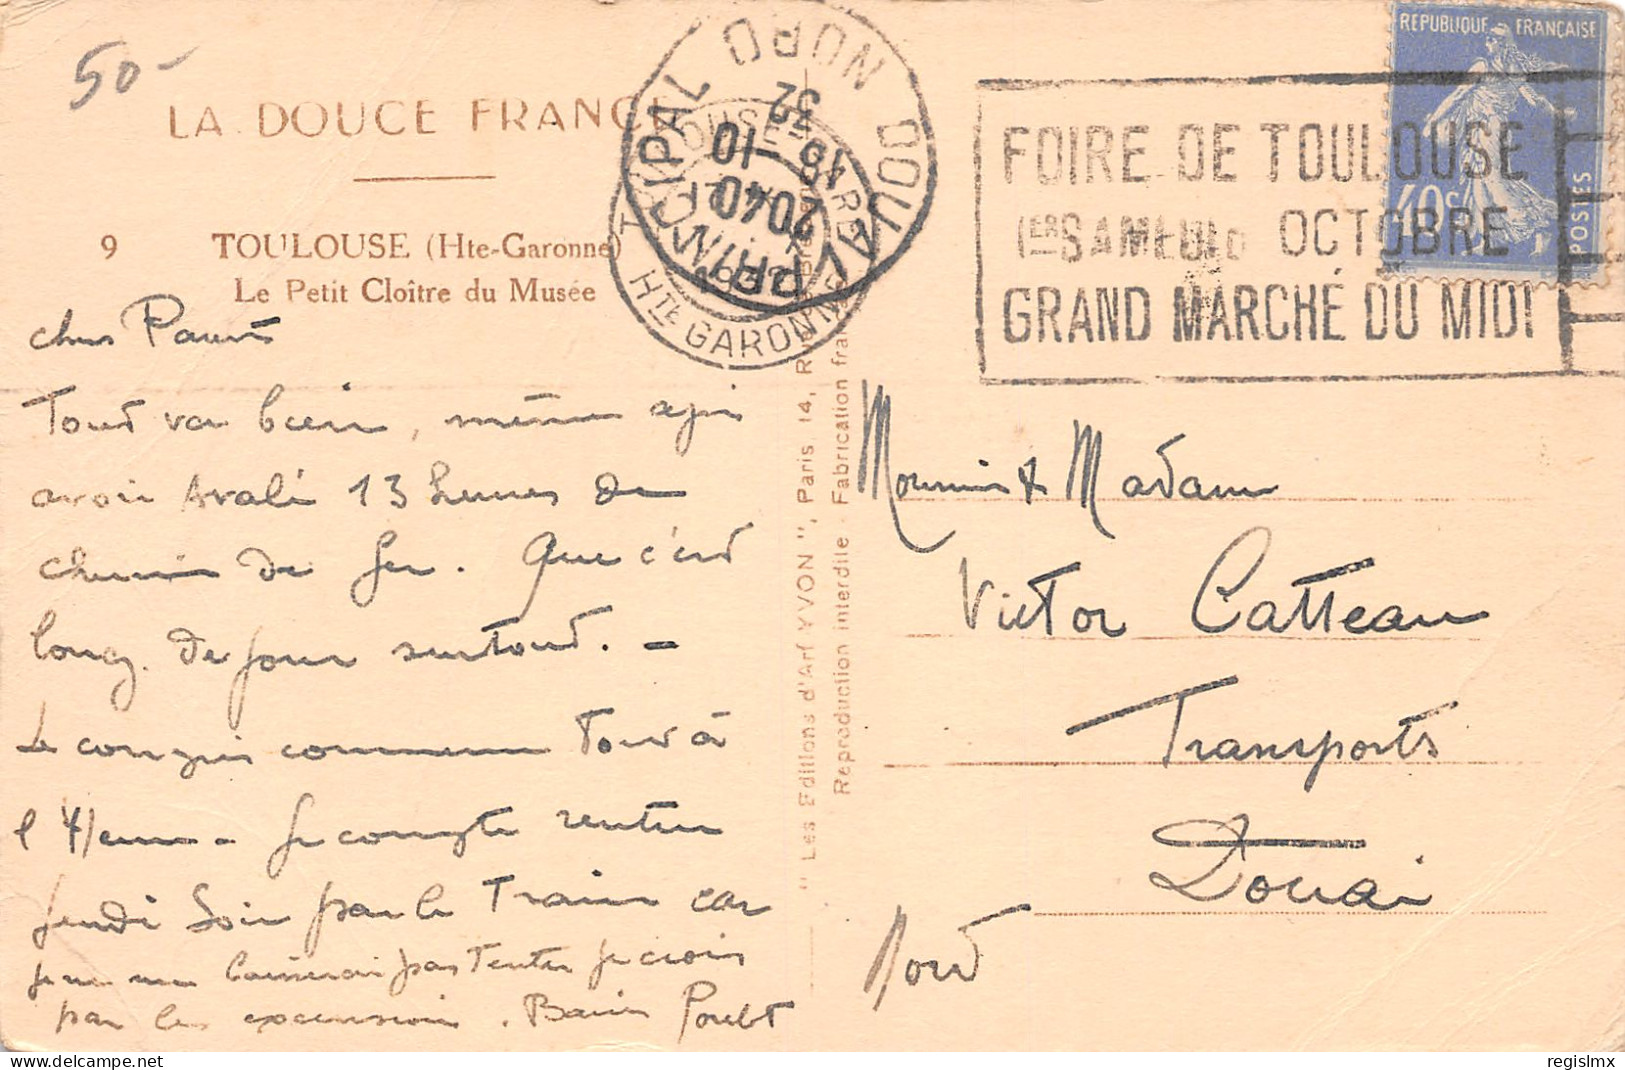 50-
LA DOUCE FRANC
9 TOULOUSE (Hte-Garonne)
Le Petit Cloître du Musée
chers Parents
Tout va bien, même après
avoir avalé 13 heures de
chemin de fer. Que c'est
long. de jour surtout. -
Le congrès commence tout à
l'heure - Je compte rentrer
jeudi soir par le train car
je ne me laisserai pas tenter je crois
par les excursions. Bons
DOUAI PRINCIPAL NORD
2040
19 -10
32
HTE GARONNE
FOIRE DE TOULOUSE
1ER SAMEDI OCTOBRE
GRAND MARCHÉ DU MIDI
REPUBLIQUE FRANÇAISE
40c
POSTES
" Les Editions d'Art YVON ", Paris, 14, Rue
Reproduction interdite - Fabrication fra
Monsieur & Madame
Victor Catteau
Transports
Douai
Nord
regislmx